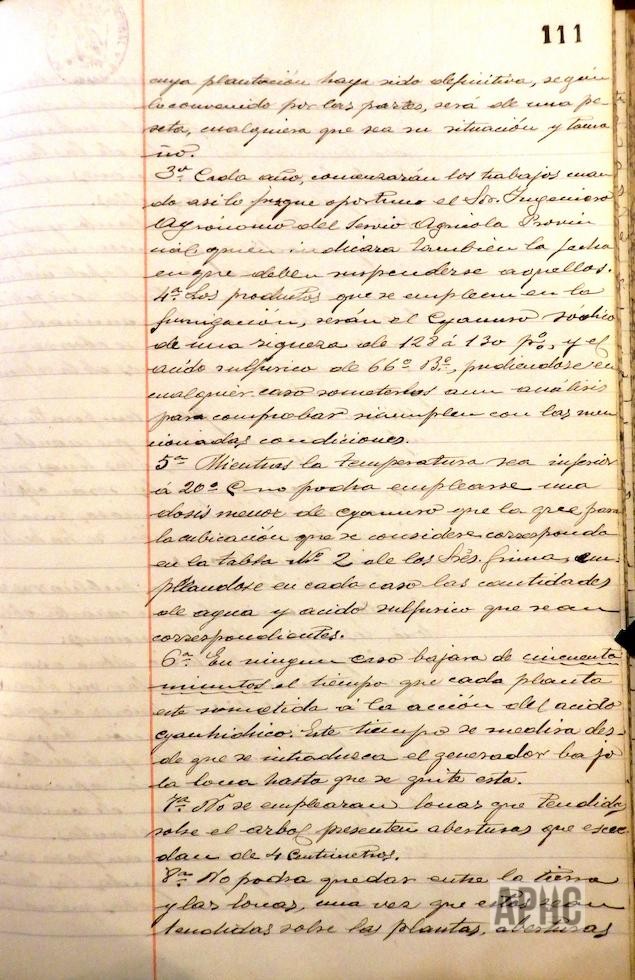 111
cuya plantación haya sido definitiva, según
lo convenido por las partes, será de una pe-
seta, cualquiera que sea su situación y tama
ño.
3ª. Cada año, comenzarán los trabajos cuan
do asi lo juzgue oportuno el Sor. Ingeniero
Agrónomo del Servio Agricola Provin
cial quien indicara tambien la fecha
en que deben suspenderse aquellos.
4ª. Los productos que se empleen en la
fumigación, serán el Cyanuro sodico
de una riqueza de 128 á 130 p%, y el
acido sulfurico de 66º Bé, pudiendose en
cualquier caso someterlos a un análisis
para comprobar si cumplen con las men
cionadas condiciones.
5ª Mientras la temperatura sea inferior
á 20º C no podra emplearse una
dosis menor de cyanuro que la que para
la cubicación que se considere corresponda
en la tabla Nº 2 de los Srês. Grima, em-
pleandose en cada caso las cantidades
de agua y acido sulfurico que sean
correspondientes.
6ª. En ningun caso bajara de cincuenta
minutos el tiempo que cada planta
este sometida á la acción del acido
cyanhidrico. Este tiempo se medira des-
de que se introduzca el generador bajo
la lona hasta que se quite esta.
7ª. No se emplearan lonas que tendidas
sobre el arbol presenten aberturas que exce
dan de 4 centimetros.
8ª. No podra quedar entre la tierra
y las lonas, una vez que estas sean
tendidas sobre las plantas, aberturas
APHC